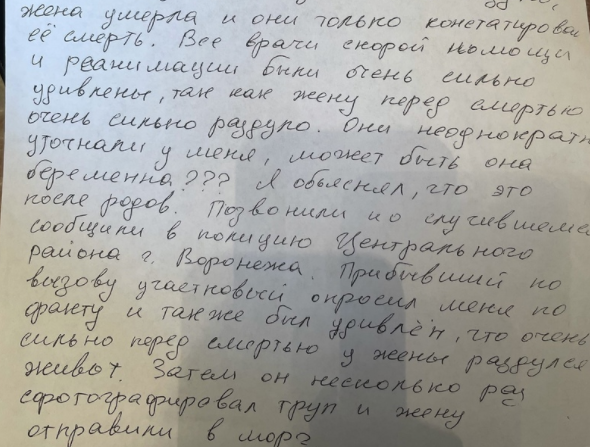 жена умерла и они только констатирова
её смерть. Все врачи скорой помощи
и реанимации были очень сильно
удивлены, так как жену перед смертью
очень сильно раздуло. Они неоднократн
уточнали у меня, может быть она
беременна??? Я объяснял, что это
после родов. Позвонили и о случившемс
сообщили в полицию Центрального
района г. Воронежа. Прибывший по
вызову участковый опросил меня по
факту и также был удивлён, что очень
сильно перед смертью у жены раздулся
живот. Затем он несколько раз
сфотографировал труп и жену
отправили в морг